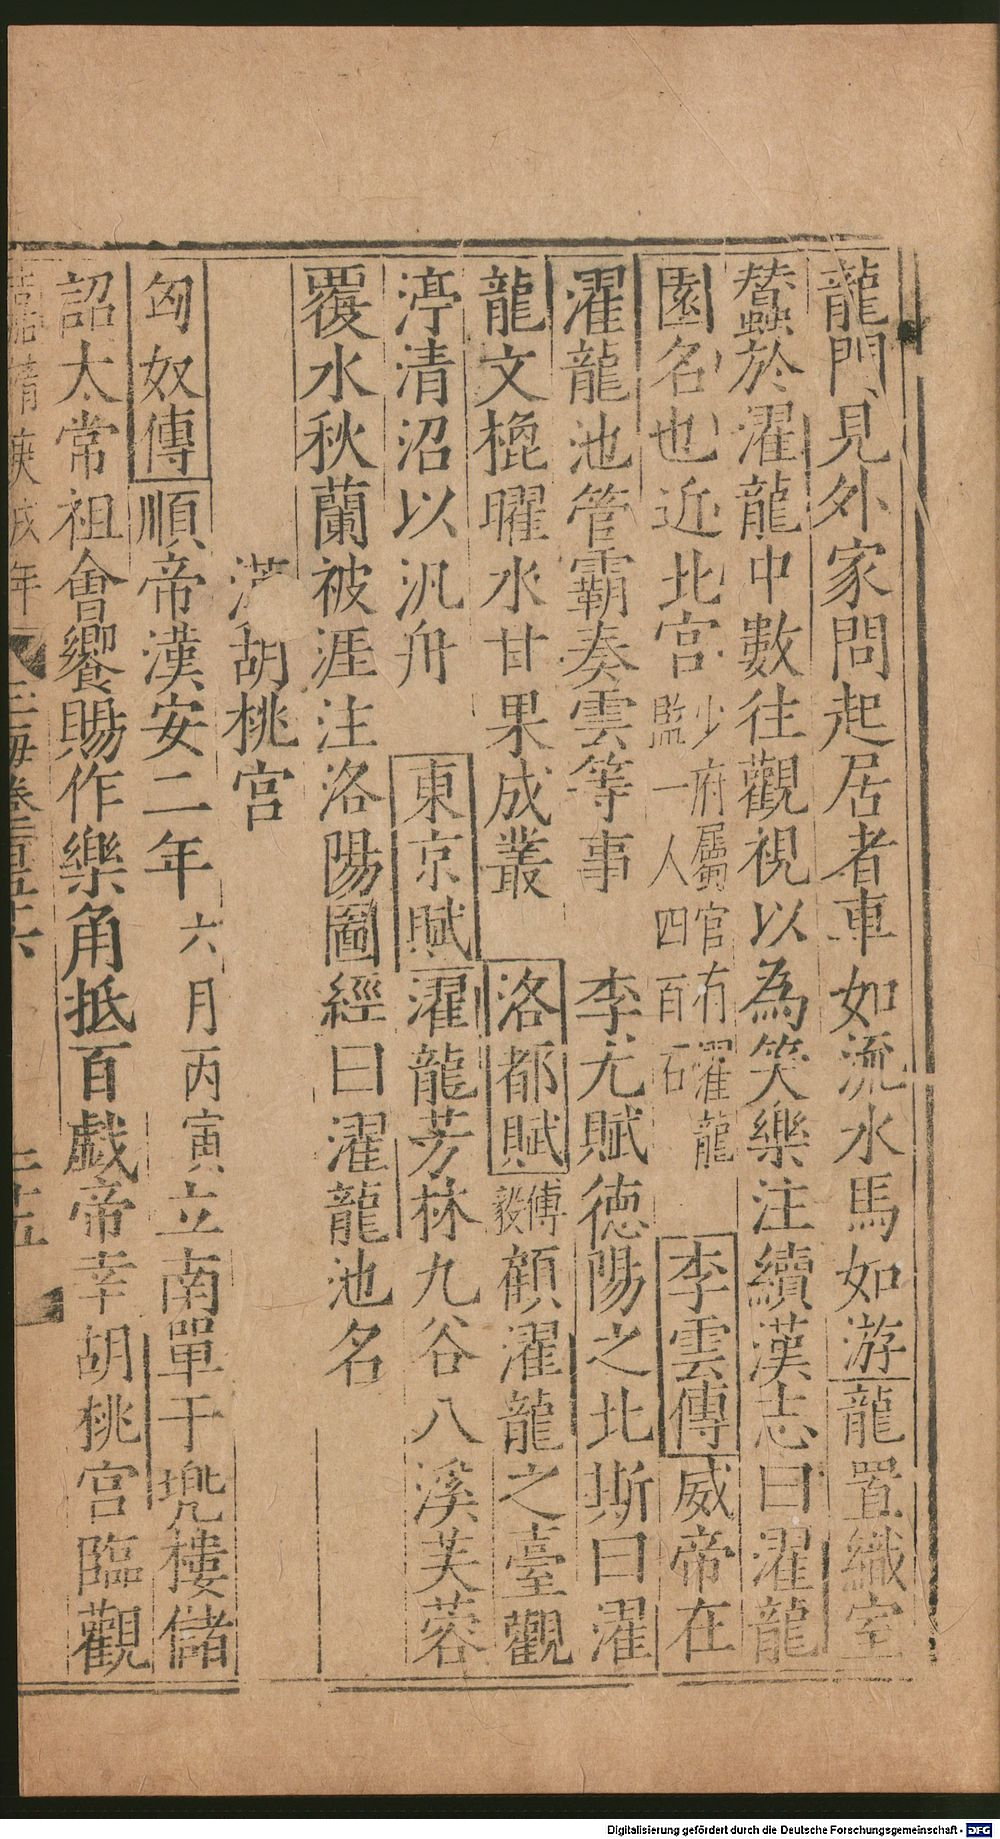 龍門見外家問起居者車如流水馬如游龍置織室
蠶於濯龍中數往觀視以為笑樂注續漢志曰濯龍
園名也近北宮少府屬官有濯龍監一人四百石李雲傳威帝在
濯龍池管霸奏雲等事李尤賦德陽之北斯曰濯
龍文㮰曜水甘果成叢洛都賦傅毅顧濯龍之臺觀
渟清沼以汎舟東京賦濯龍芳林九谷八溪芙蓉
覆水秋蘭被涯注洛陽圖經曰濯龍池名
漢胡桃宮
匈奴傳順帝漢安二年六月丙寅立南單于兠樓儲
詔太常祖會饗賜作樂角抵百戲帝幸胡桃宮臨觀
年
玉海卷
Digitalisierung gefördert durch die Deutsche Forschungsgemeinschaft - DFG